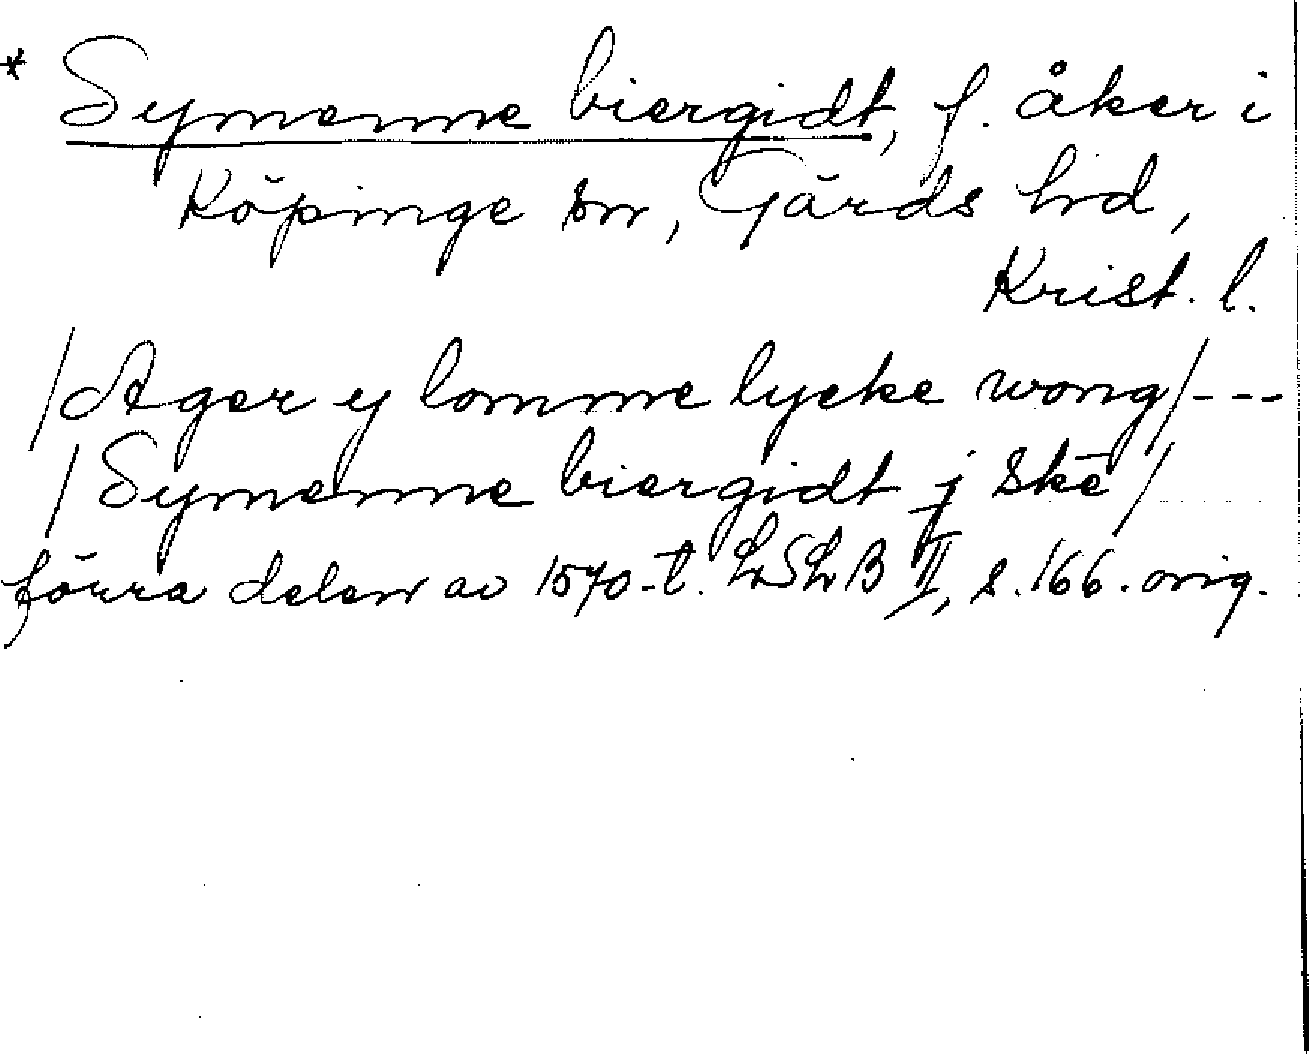 * Symenne biergidt, f. åker i
Köpinge sn, Gärds hd,
Krist. l.
/Ager ej lomme lycke wong/---
/Symenne biergidt j Skē/
förra delen av 1570-t. LSLB II, s. 166. orig.